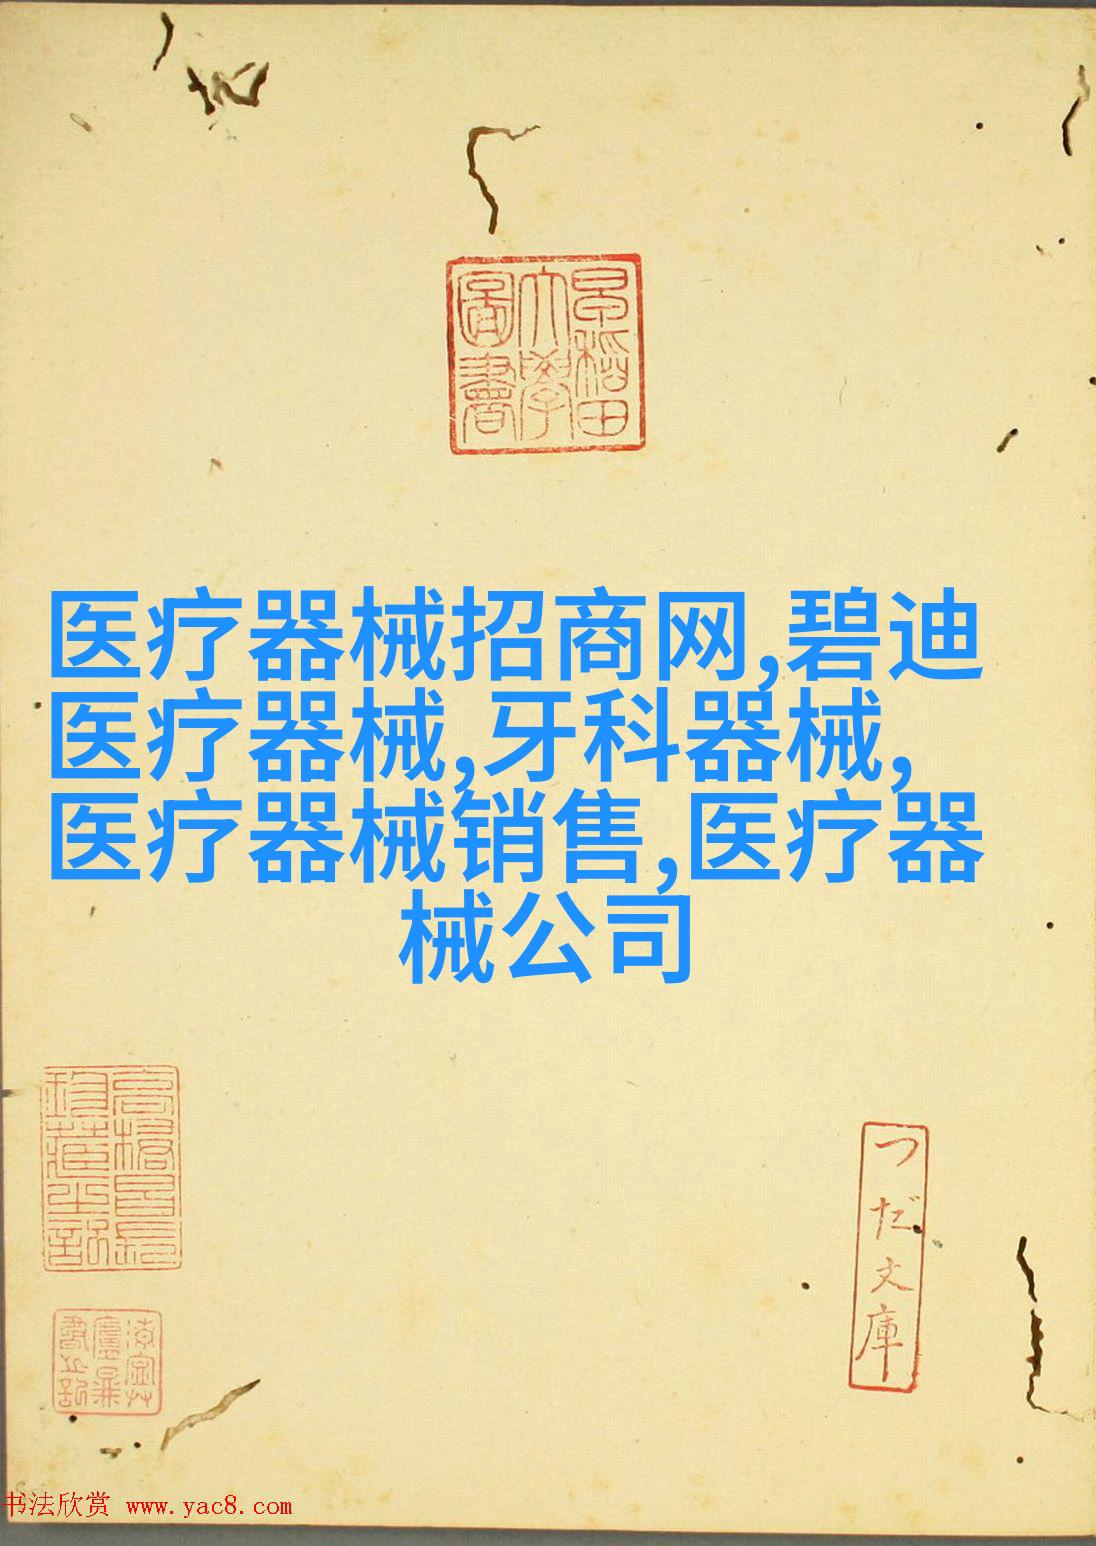 早稲田
大學
圖書
医疗器械招商网,碧迪
医疗器械,牙科器械,
医疗器械销售,医疗器
械公司
つだ文庫
书法欣赏 www.yac8.com